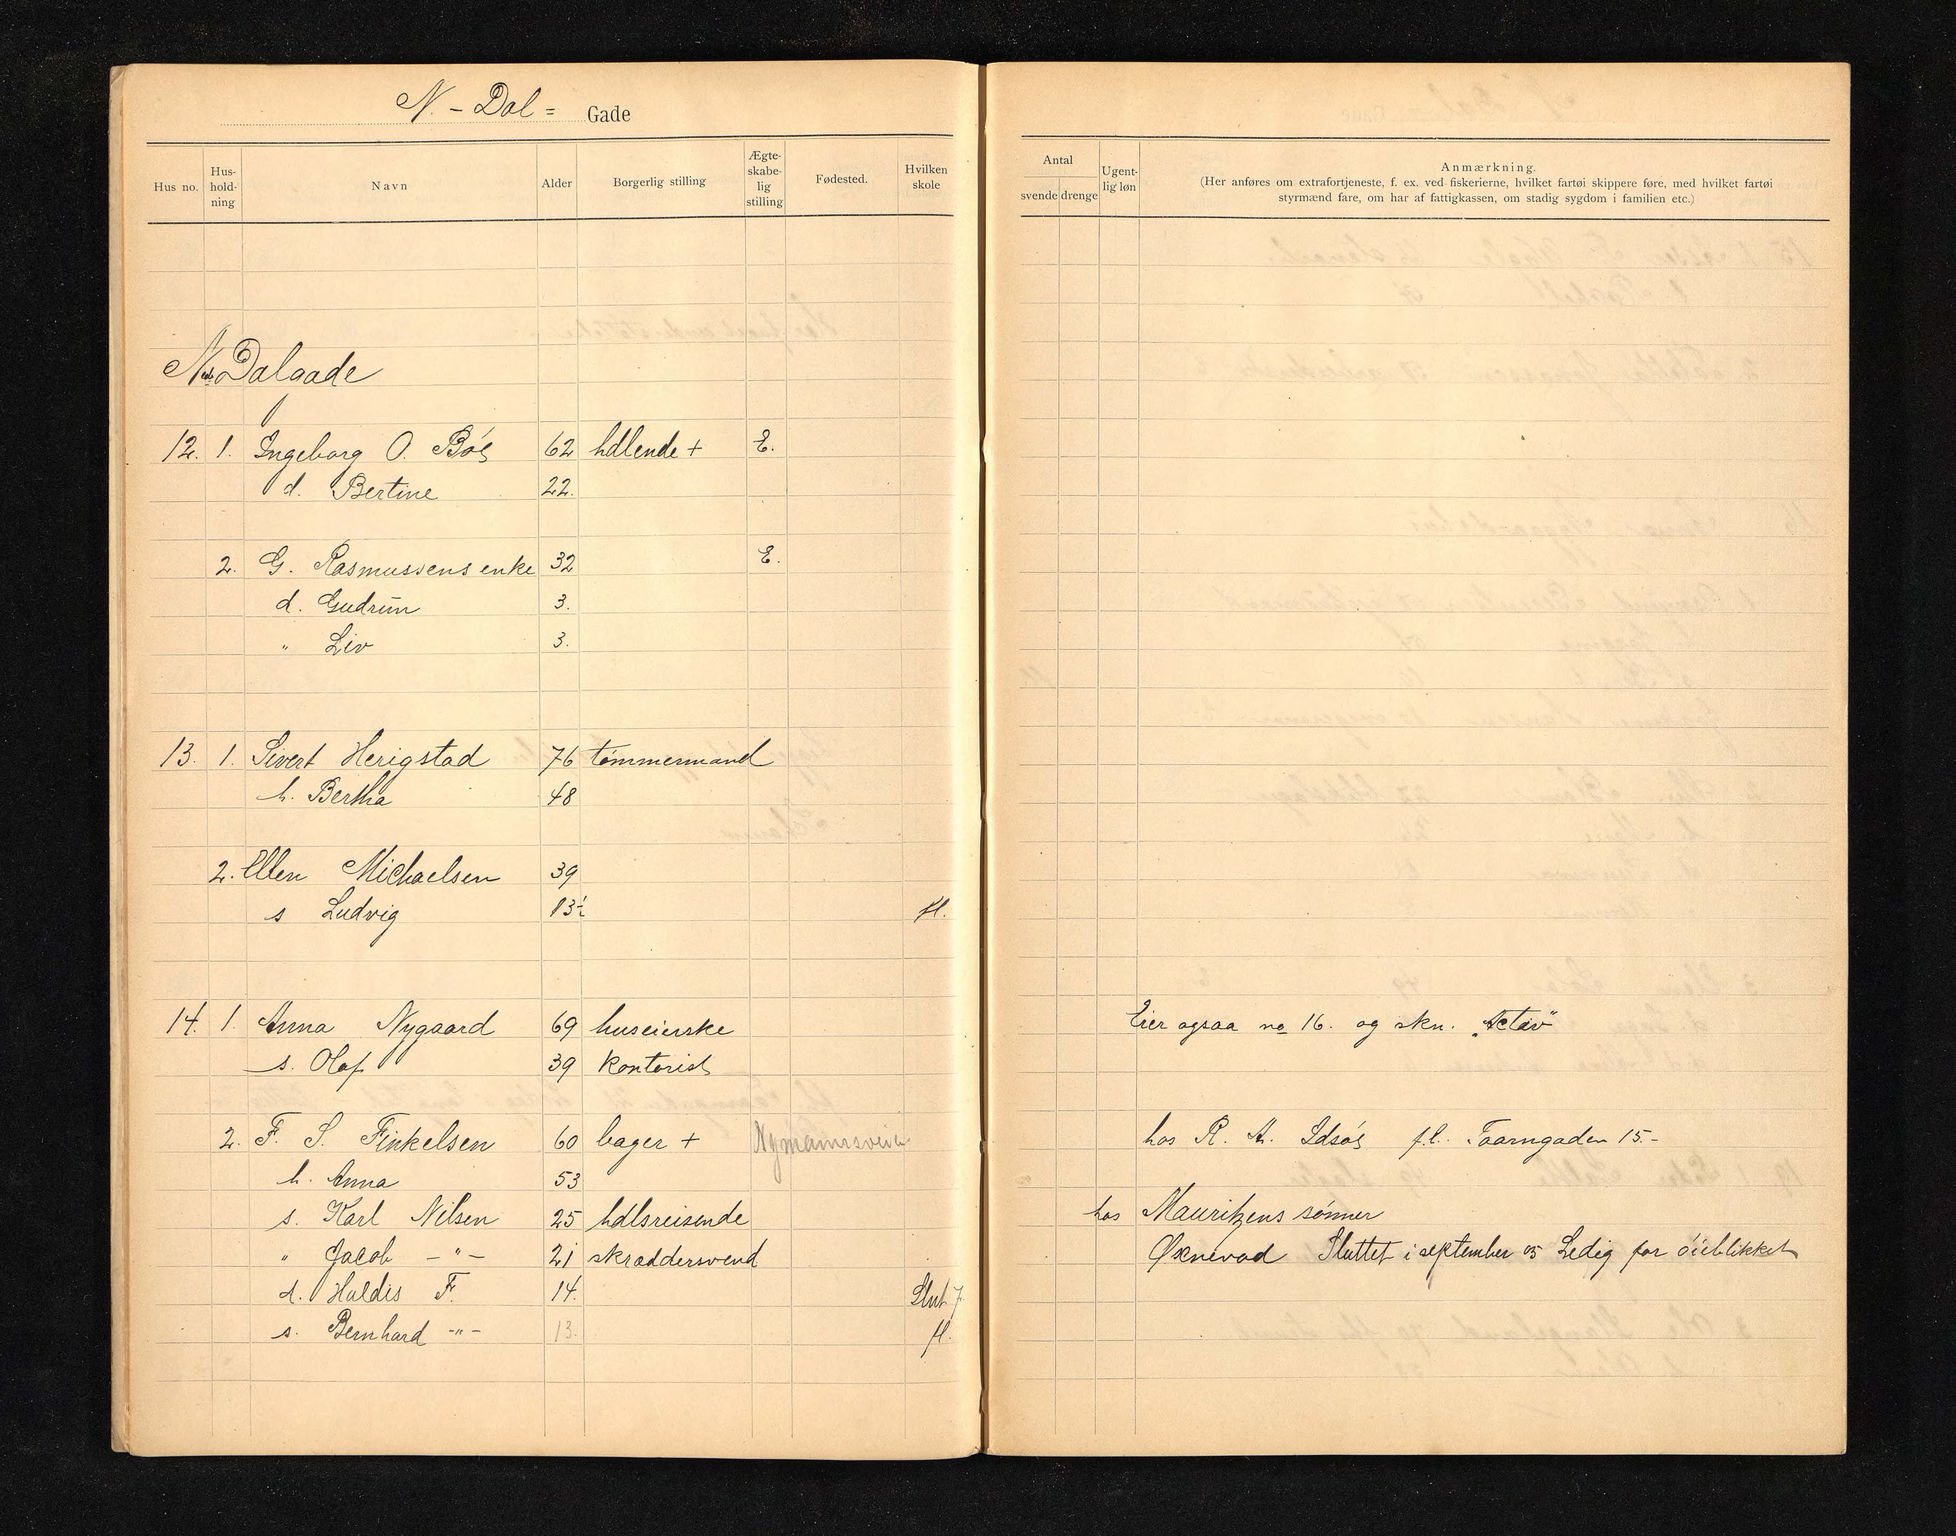 N. - Dal = Gade
Hus no. Hus-hold-ning Navn Alder Borgerlig stilling Ægte-skabe-lig stilling Fødested. Hvilken skole
Antal svende drenge Ugent-lig løn Anmærkning.
(Her anføres om extrafortjeneste, f. ex. ved fiskerierne, hvilket fartøi skippere føre, med hvilket fartøi
styrmænd fare, om har af fattigkassen, om stadig sygdom i familien etc.)
Nd. Dalgade
12. 1. Ingeborg O. Bøe 62 hdlende + E.
d. Bertine 22.
2. G. Rasmussens enke 32 E.
d. Gudrun 3.
" Liv 3.
13. 1. Sivert Herigstad 76 tømmermand
h. Bertha 48
2. Ellen Michaelsen 39
s Ludvig 13½ fl.
14. 1. Anna Nygaard 69 huseierske Eier ogsaa no 16. og skn. "Activ"
s. Olaf 39 kontorist
2. F. S. Finkelsen 60 bager + Nymannsveien hos R. A. Idsøe f.l. Taarngaden 15.-
h. Anna 53
s. Karl Nilsen 25 hdlsreisende hos Mauritzens sønner
" Jacob -"- 21 skræddersvend Øxnevad Sluttet i september 05 Ledig for øieblikket
d. Haldis F. 14. Slut 7
s. Bernhard -"- 13. fl.